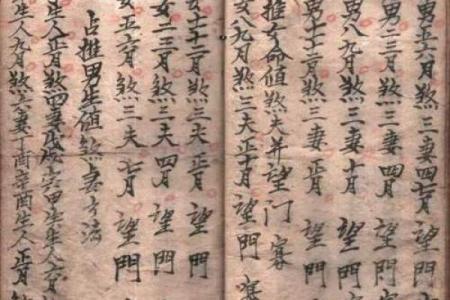 男正六月煞三妻四七月望門
男二三月煞三妻四月望門
男八九月煞三妻十月望門
男十二月煞三妻正月望門
推女命值煞三夫并望门寡
女八九月煞三夫正十月望門寡
十二月煞三夫正月望門
女二三月煞三夫四月望門
女正六月煞三夫七月望門
占推男生值煞妻方法
生人正月煞四妻戊戌六甲生人六月
生人九月煞六妻丁酉辛酉生人正月煞